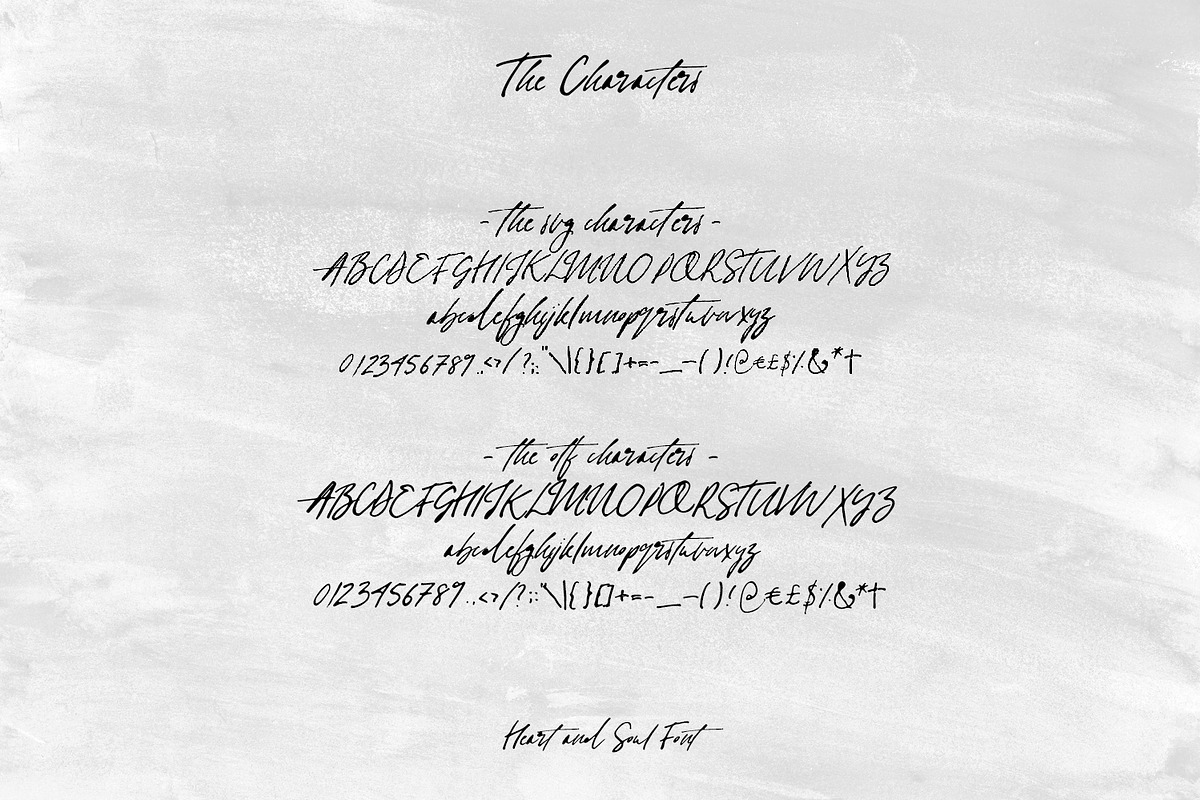 The Characters
- the svg characters -
ABCDEFGHIJKLMNUOPQRSTUVWXYZ
abcdefghijklmnopqrstuvwxyz
0123456789.,<>/?;:"\|{}[]+=-__-()!@€£$%&*†
- the otf characters -
ABCDEFGHIJKLMNUOPQRSTUVWXYZ
abcdefghijklmnopqrstuvwxyz
0123456789.,<>/?;:"\|{}[]+=-__-()!@€£$%&*†
Heart and Soul Font